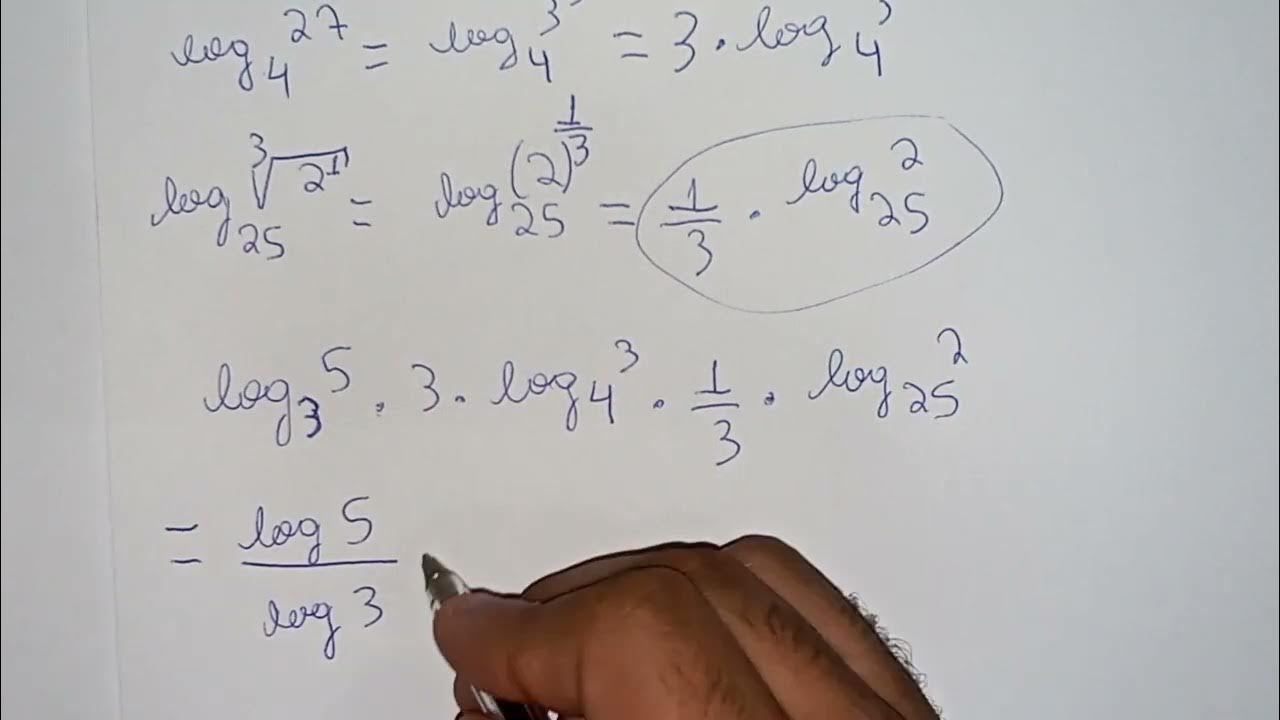 log₄ 27 = log₄ 3³ = 3 · log₄ 3
log₂₅ ∛2¹ = log₂₅ (2)^(1/3) = 1/3 · log₂₅ 2
log₃ 5 · 3 · log₄ 3 · 1/3 · log₂₅ 2
= log 5 / log 3